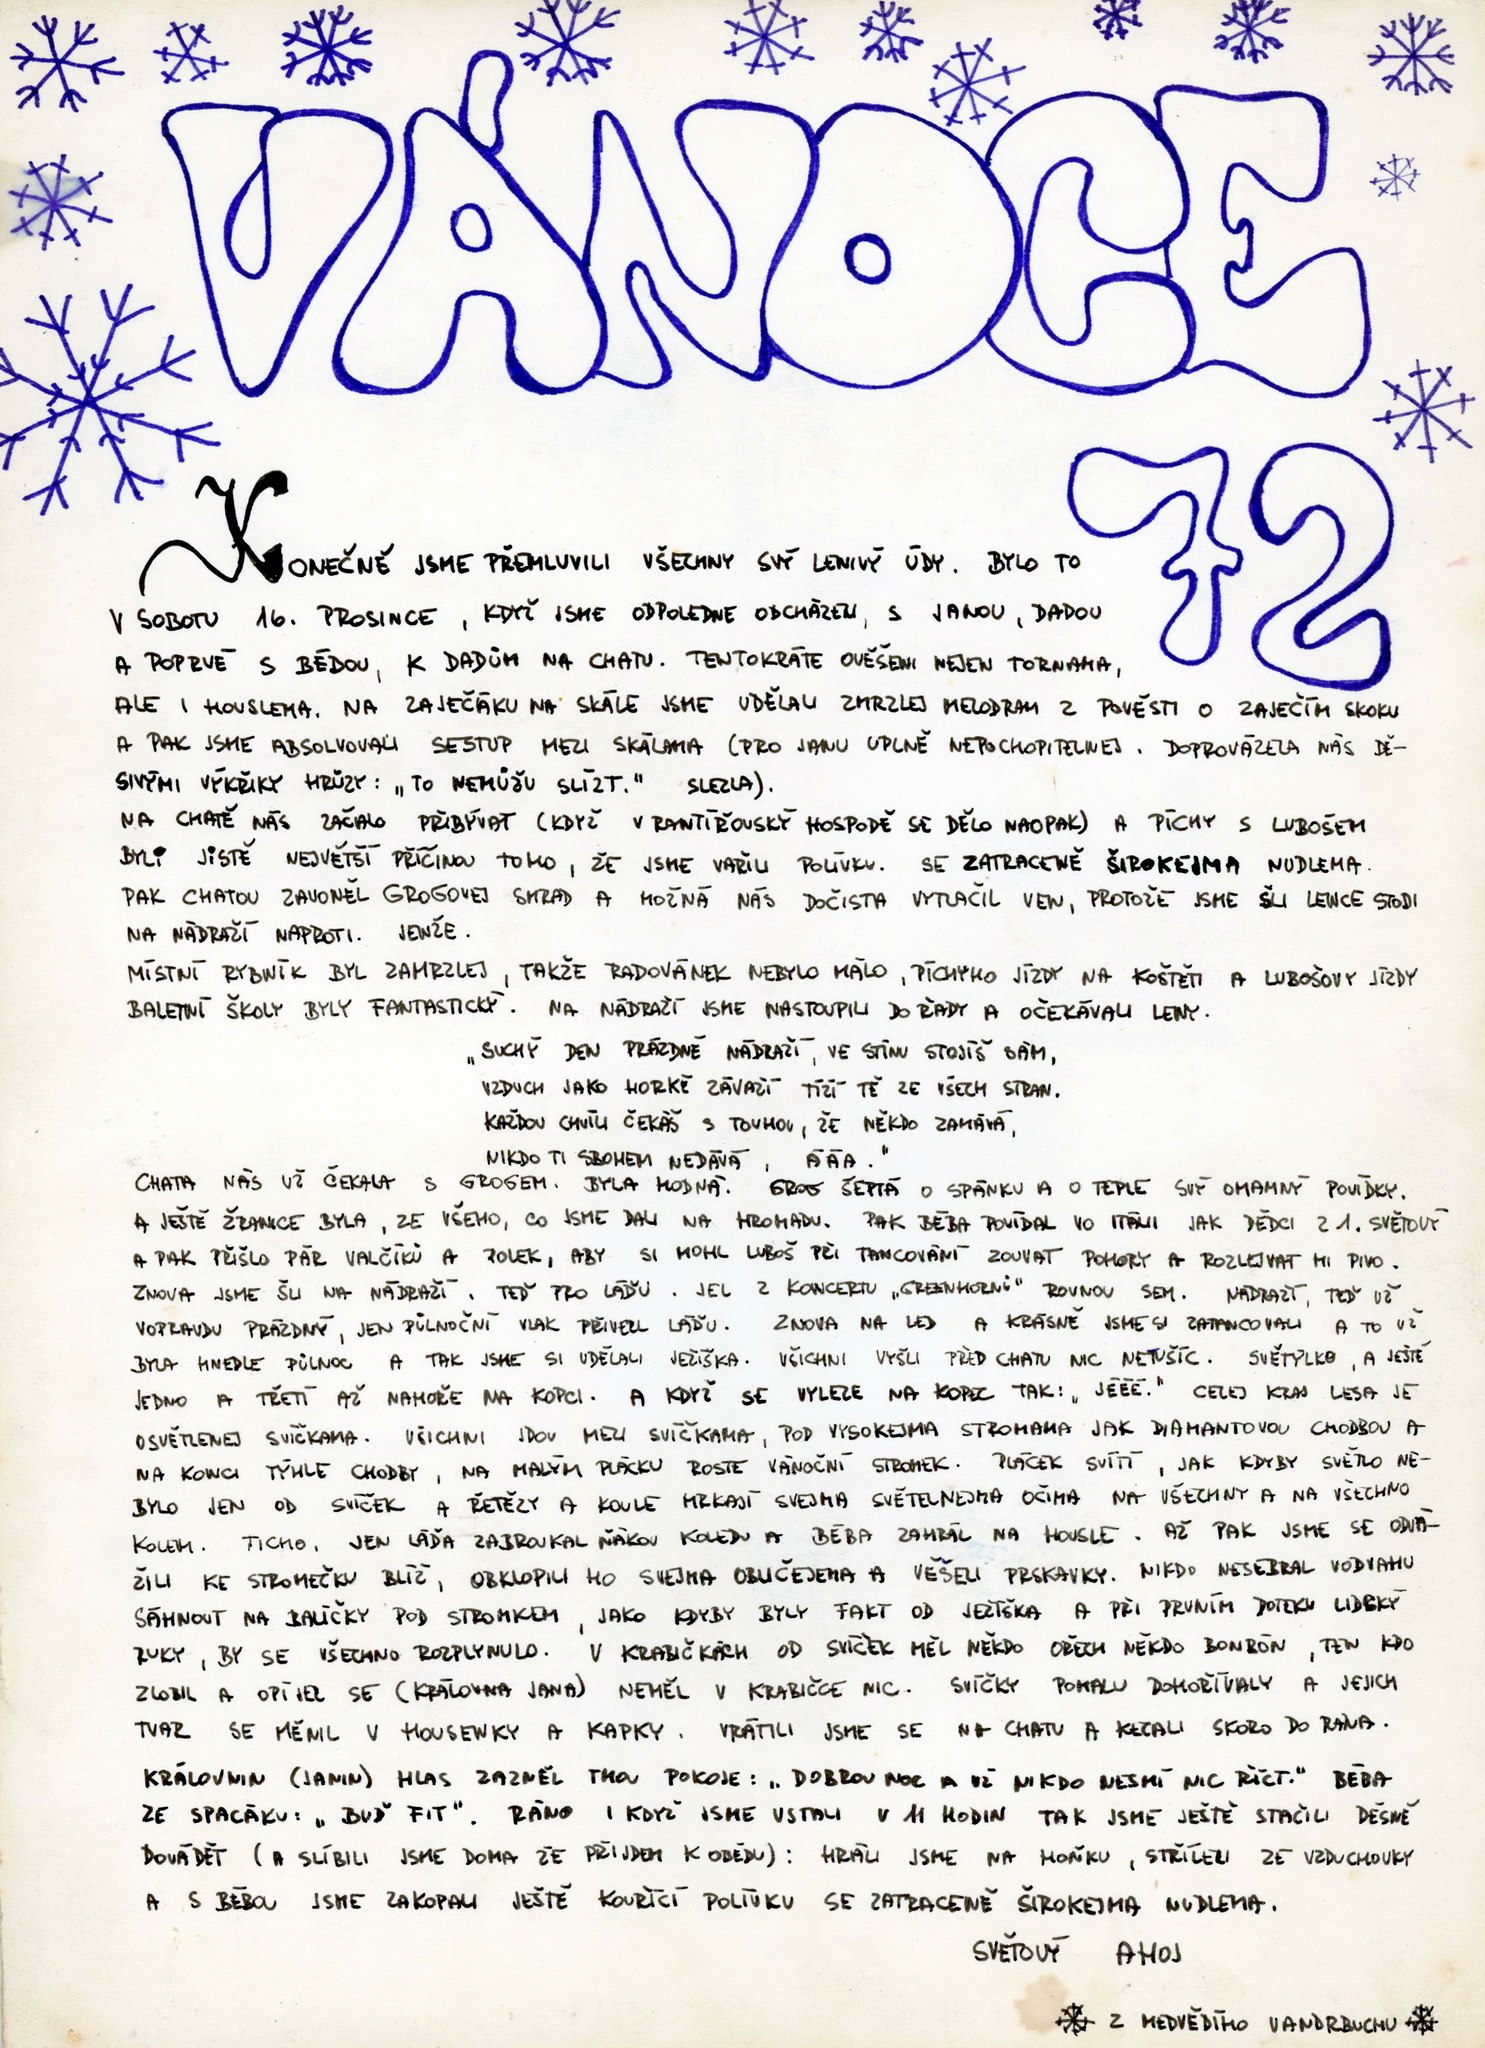 VÁNOCE
72
KONEČNĚ JSME PŘEMLUVILI VŠECHNY SVÝ LENIVÝ ÚDY. BYLO TO
V SOBOTU 16. PROSINCE, KDYŽ JSME ODPOLEDNE ODCHÁZELI, S JANOU, DADOU
A POPRVÉ S BÉBOU, K DADŮM NA CHATU. TENTOKRÁTE OVĚŠENI NEJEN TORNAMA,
ALE I HOUSLEMA. NA ZAJEČÁKU NA SKÁLE JSME UDĚLALI ZMRZLEJ MELODRAM Z POVĚSTI O ZAJEČÍM SKOKU
A PAK JSME ABSOLVOVALI SESTUP MEZI SKÁLAMA (PRO JANU UPLNĚ NEPOCHOPITELNEJ. DOPROVÁZELA NÁS DĚ-
SIVÝMI VÝKŘIKY HRŮZY: „TO NEMŮŽU SLÍZT." SLEZLA).
NA CHATĚ NÁS ZAČALO PŘIBÝVAT (KDYŽ V RANTÍŘOVSKÝ HOSPODĚ SE DĚLO NAOPAK) A PÍCHY S LUBOŠEM
BYLI JISTĚ NEJVĚTŠÍ PŘÍČINOU TOHO, ŽE JSME VAŘILI POLÍVKU. SE ZATRACENĚ ŠIROKEJMA NUDLEMA.
PAK CHATOU ZAVONĚL GROGOVEJ SMRAD A MOŽNÁ NÁS DOČISTA VYTLAČIL VEN, PROTOŽE JSME ŠLI LEHCE STODI
NA NÁDRAŽÍ NAPROTI. JENŽE.
MÍSTNÍ RYBNÍK BYL ZAMRZLEJ, TAKŽE RADOVÁNEK NEBYLO MÁLO, PÍCHYHO JÍZDY NA KOŠTĚTI A LUBOŠOVY JÍZDY
BALETNÍ ŠKOLY BYLY FANTASTICKÝ. NA NÁDRAŽÍ JSME NASTOUPILI DO ŘADY A OČEKÁVALI LENY.
„SUCHÝ DEN PRÁZDNÉ NÁDRAŽÍ, VE STÍNU STOJÍŠ SÁM,
VZDUCH JAKO HORKÉ ZÁVAŽÍ TÍŽÍ TĚ ZE VŠECH STRAN.
KAŽDOU CHVÍLI ČEKÁŠ S TOUHOU, ŽE NĚKDO ZAMÁVÁ,
NIKDO TI SBOHEM NEDÁVÁ, ÁÁA."
CHATA NÁS UŽ ČEKALA S GROGEM. BYLA HODNÁ. GROG ŠEPTÁ O SPÁNKU A O TEPLE SVÝ OMAMNÝ POVÍDKY.
A JEŠTĚ ŽRANICE BYLA, ZE VŠEHO, CO JSME DALI NA HROMADU. PAK BÉBA POVÍDAL VO ITÁLII JAK DĚDCI Z 1. SVĚTOVÝ
A PAK PŘIŠLO PÁR VALČÍKŮ A POLEK, ABY SI MOHL LUBOŠ PŘI TANCOVÁNÍ ZOUVAT POHORY A ROZLEJVAT MI PIVO.
ZNOVA JSME ŠLI NA NÁDRAŽÍ. TEĎ PRO LÁĎU. JEL Z KONCERTU „GREENHORNŮ" ROVNOU SEM. NÁDRAŽÍ, TEĎ UŽ
VOPRAVDU PRÁZDNÝ, JEN PŮLNOČNÍ VLAK PŘIVEZL LÁĎU. ZNOVA NA LED A KRÁSNĚ JSME SI ZATANCOVALI A TO UŽ
BYLA HNEDLE PŮLNOC A TAK JSME SI UDĚLALI JEŽÍŠKA. VŠICHNI VYŠLI PŘED CHATU NIC NETUŠÍC. SVĚTÝLKO, A JEŠTĚ
JEDNO A TŘETÍ AŽ NAHOŘE NA KOPCI. A KDYŽ SE VYLEZE NA KOPEC TAK: „JÉÉÉ." CELEJ KRAJ LESA JE
OSVĚTLENEJ SVÍČKAMA. VŠICHNI JDOU MEZI SVÍČKAMA, POD VYSOKEJMA STROMAMA JAK DIAMANTOVOU CHODBOU A
NA KONCI TÝHLE CHODBY, NA MALÝM PLÁCKU ROSTE VÁNOČNÍ STROMEK. PLÁCEK SVÍTÍ, JAK KDYBY SVĚTLO NE-
BYLO JEN OD SVÍČEK A ŘETĚZY A KOULE MRKAJÍ SVEJMA SVĚTELNEJMA OČIMA NA VŠECHNY A NA VŠECHNO
KOLEM. TICHO, JEN LÁĎA ZABROUKAL ŇÁKOU KOLEDU A BÉBA ZAHRÁL NA HOUSLE. AŽ PAK JSME SE ODVÁ-
ŽILI KE STROMEČKU BLÍŽ, OBKLOPILI HO SVEJMA OBLIČEJEMA A VĚŠELI PRSKAVKY. NIKDO NESEBRAL VODVAHU
SÁHNOUT NA BALÍČKY POD STROMKEM, JAKO KDYBY BYLY FAKT OD JEŽÍŠKA A PŘI PRVNÍM DOTEKU LIDSKÝ
RUKY, BY SE VŠECHNO ROZPLYNULO. V KRABIČKÁCH OD SVÍČEK MĚL NĚKDO OŘECH NĚKDO BONBÓN, TEN KDO
ZLOBIL A OPÍJEL SE (KRÁLOVNA JANA) NEMĚL V KRABIČCE NIC. SVÍČKY POMALU DOHOŘÍVALY A JEJICH
TVAR SE MĚNIL V HOUSENKY A KAPKY. VRÁTILI JSME SE NA CHATU A KECALI SKORO DO RÁNA.
KRÁLOVNIN (JANIN) HLAS ZAZNĚL TMOU POKOJE: „DOBROU NOC A UŽ NIKDO NESMÍ NIC ŘÍCT." BÉBA
ZE SPACÁKU: „BUĎ FIT". RÁNO I KDYŽ JSME VSTALI V 11 HODIN TAK JSME JEŠTĚ STAČILI DĚSNĚ
DOVÁDĚT (A SLÍBILI JSME DOMA ŽE PŘIJDEM K OBĚDU): HRÁLI JSME NA HOŇKU, STŘÍLELI ZE VZDUCHOVKY
A S BÉBOU JSME ZAKOPALI JEŠTĚ KOUŘÍCÍ POLÍVKU SE ZATRACENĚ ŠIROKEJMA NUDLEMA.
SVĚTOVÝ AHOJ
Z MEDVĚDÍHO VANDRBUCHU